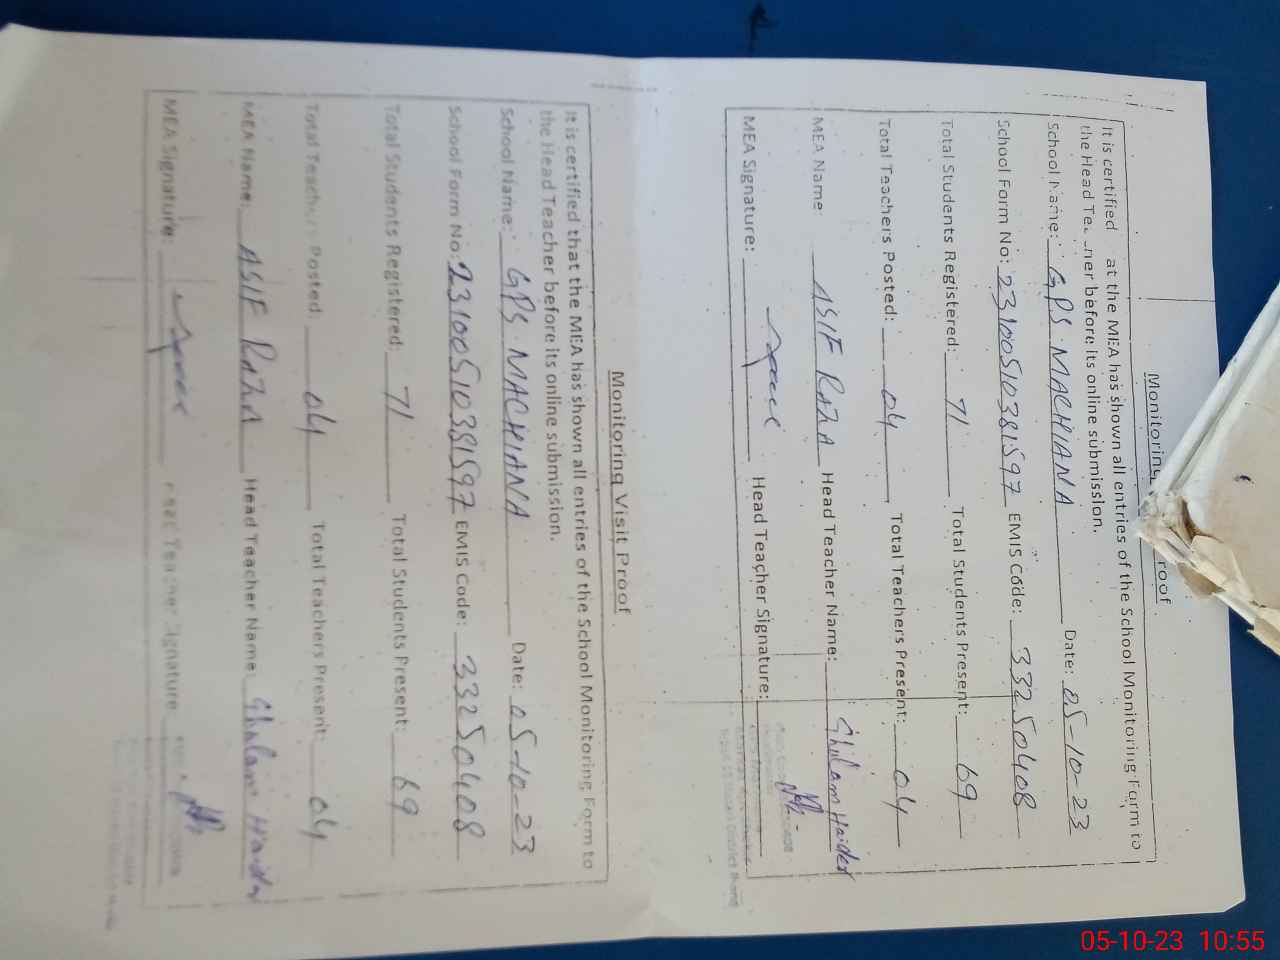 Monitoring roof
It is certified at the MEA has shown all entries of the School Monitoring Form to
the Head Te ner before its online submission.
School Name: GPS MACHIANA Date: 05-10-23
School Form No: 23100510381597 EMIS Code: 33250408
Total Students Registered: 71 Total Students Present: 69
Total Teachers Posted: 04 Total Teachers Present: 04
MEA Name: ASIF RAZA Head Teacher Name: Ghulam Haider
MEA Signature: Head Teacher Signature:
Monitoring Visit Proof
It is certified that the MEA has shown all entries of the School Monitoring Form to
the Head Teacher before its online submission.
School Name: GPS MACHIANA Date: 05-10-23
School Form No: 23100510381597 EMIS Code: 33250408
Total Students Registered: 71 Total Students Present: 69
Total Teachers Posted: 04 Total Teachers Present: 04
MEA Name: ASIF RAZA Head Teacher Name: Ghulam Haider
MEA Signature: Teacher Signature:
05-10-23 10:55